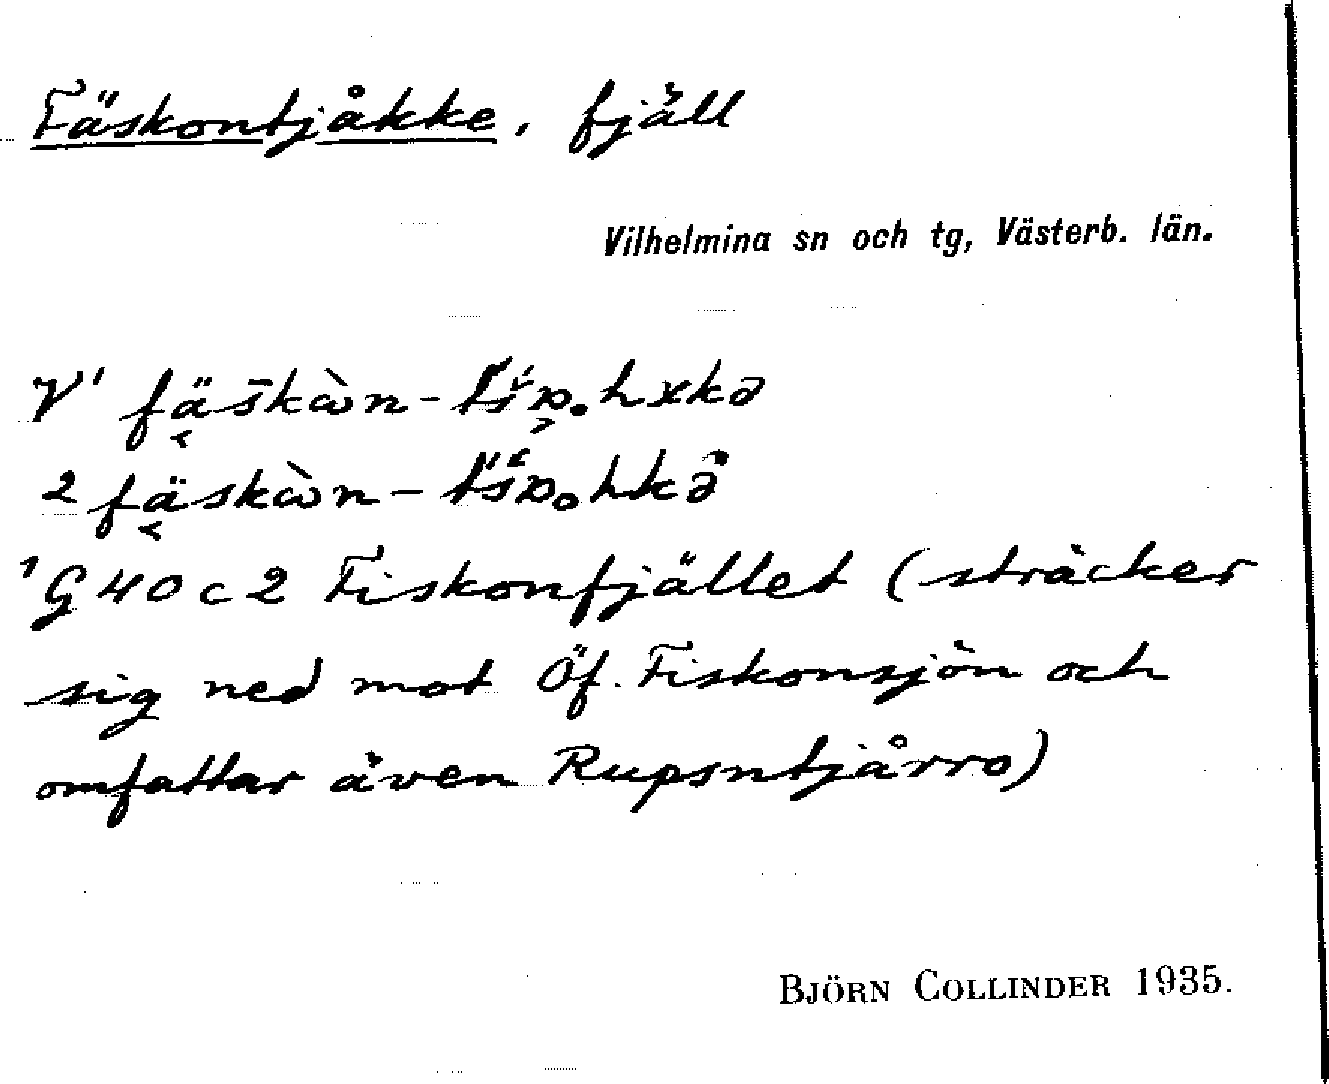 Fäskontjåkke, fjäll
Vilhelmina sn och tg, Västerb. län.
V¹
2
¹G40c2 Fiskonfjället (sträcker
sig ned mot Öf. Fiskonsjön och
omfattar även Rupsntjårro)
BJÖRN COLLINDER 1935.